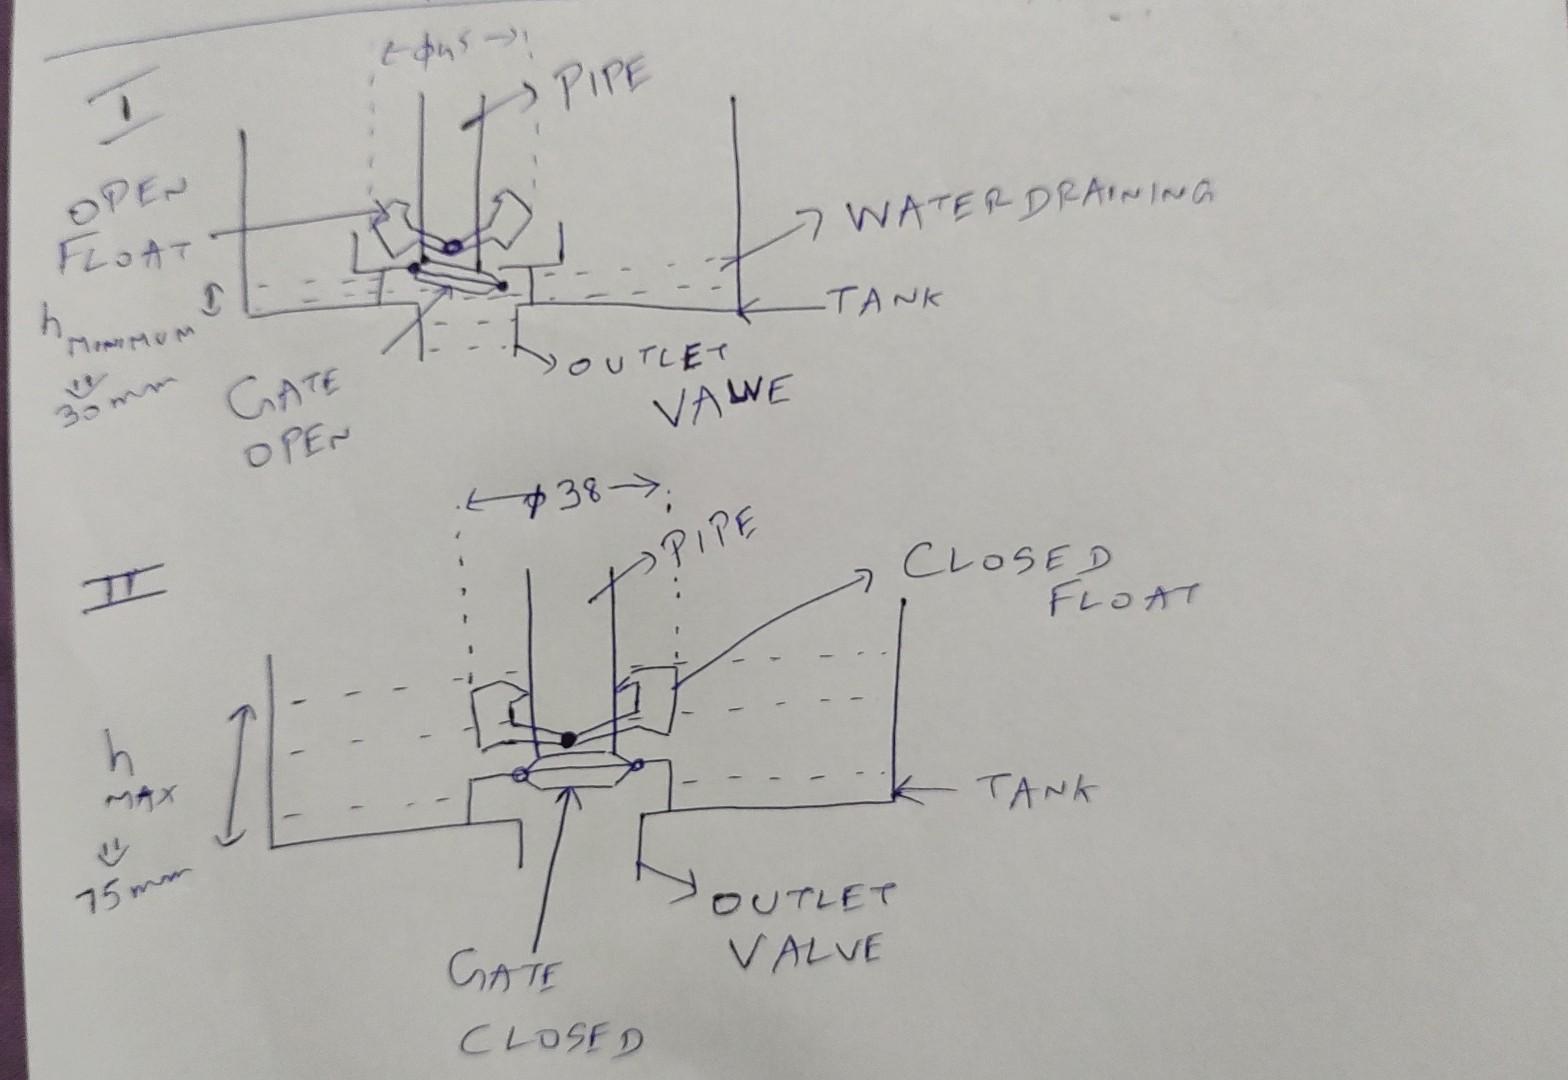 I
←ϕ45→
PIPE
OPEN
FLOAT
WATER DRAINING
h MINIMUM
30mm
TANK
OUTLET
VALVE
GATE
OPEN
II
←ϕ38→
PIPE
CLOSED
FLOAT
h
MAX
75mm
TANK
OUTLET
VALVE
GATE
CLOSED